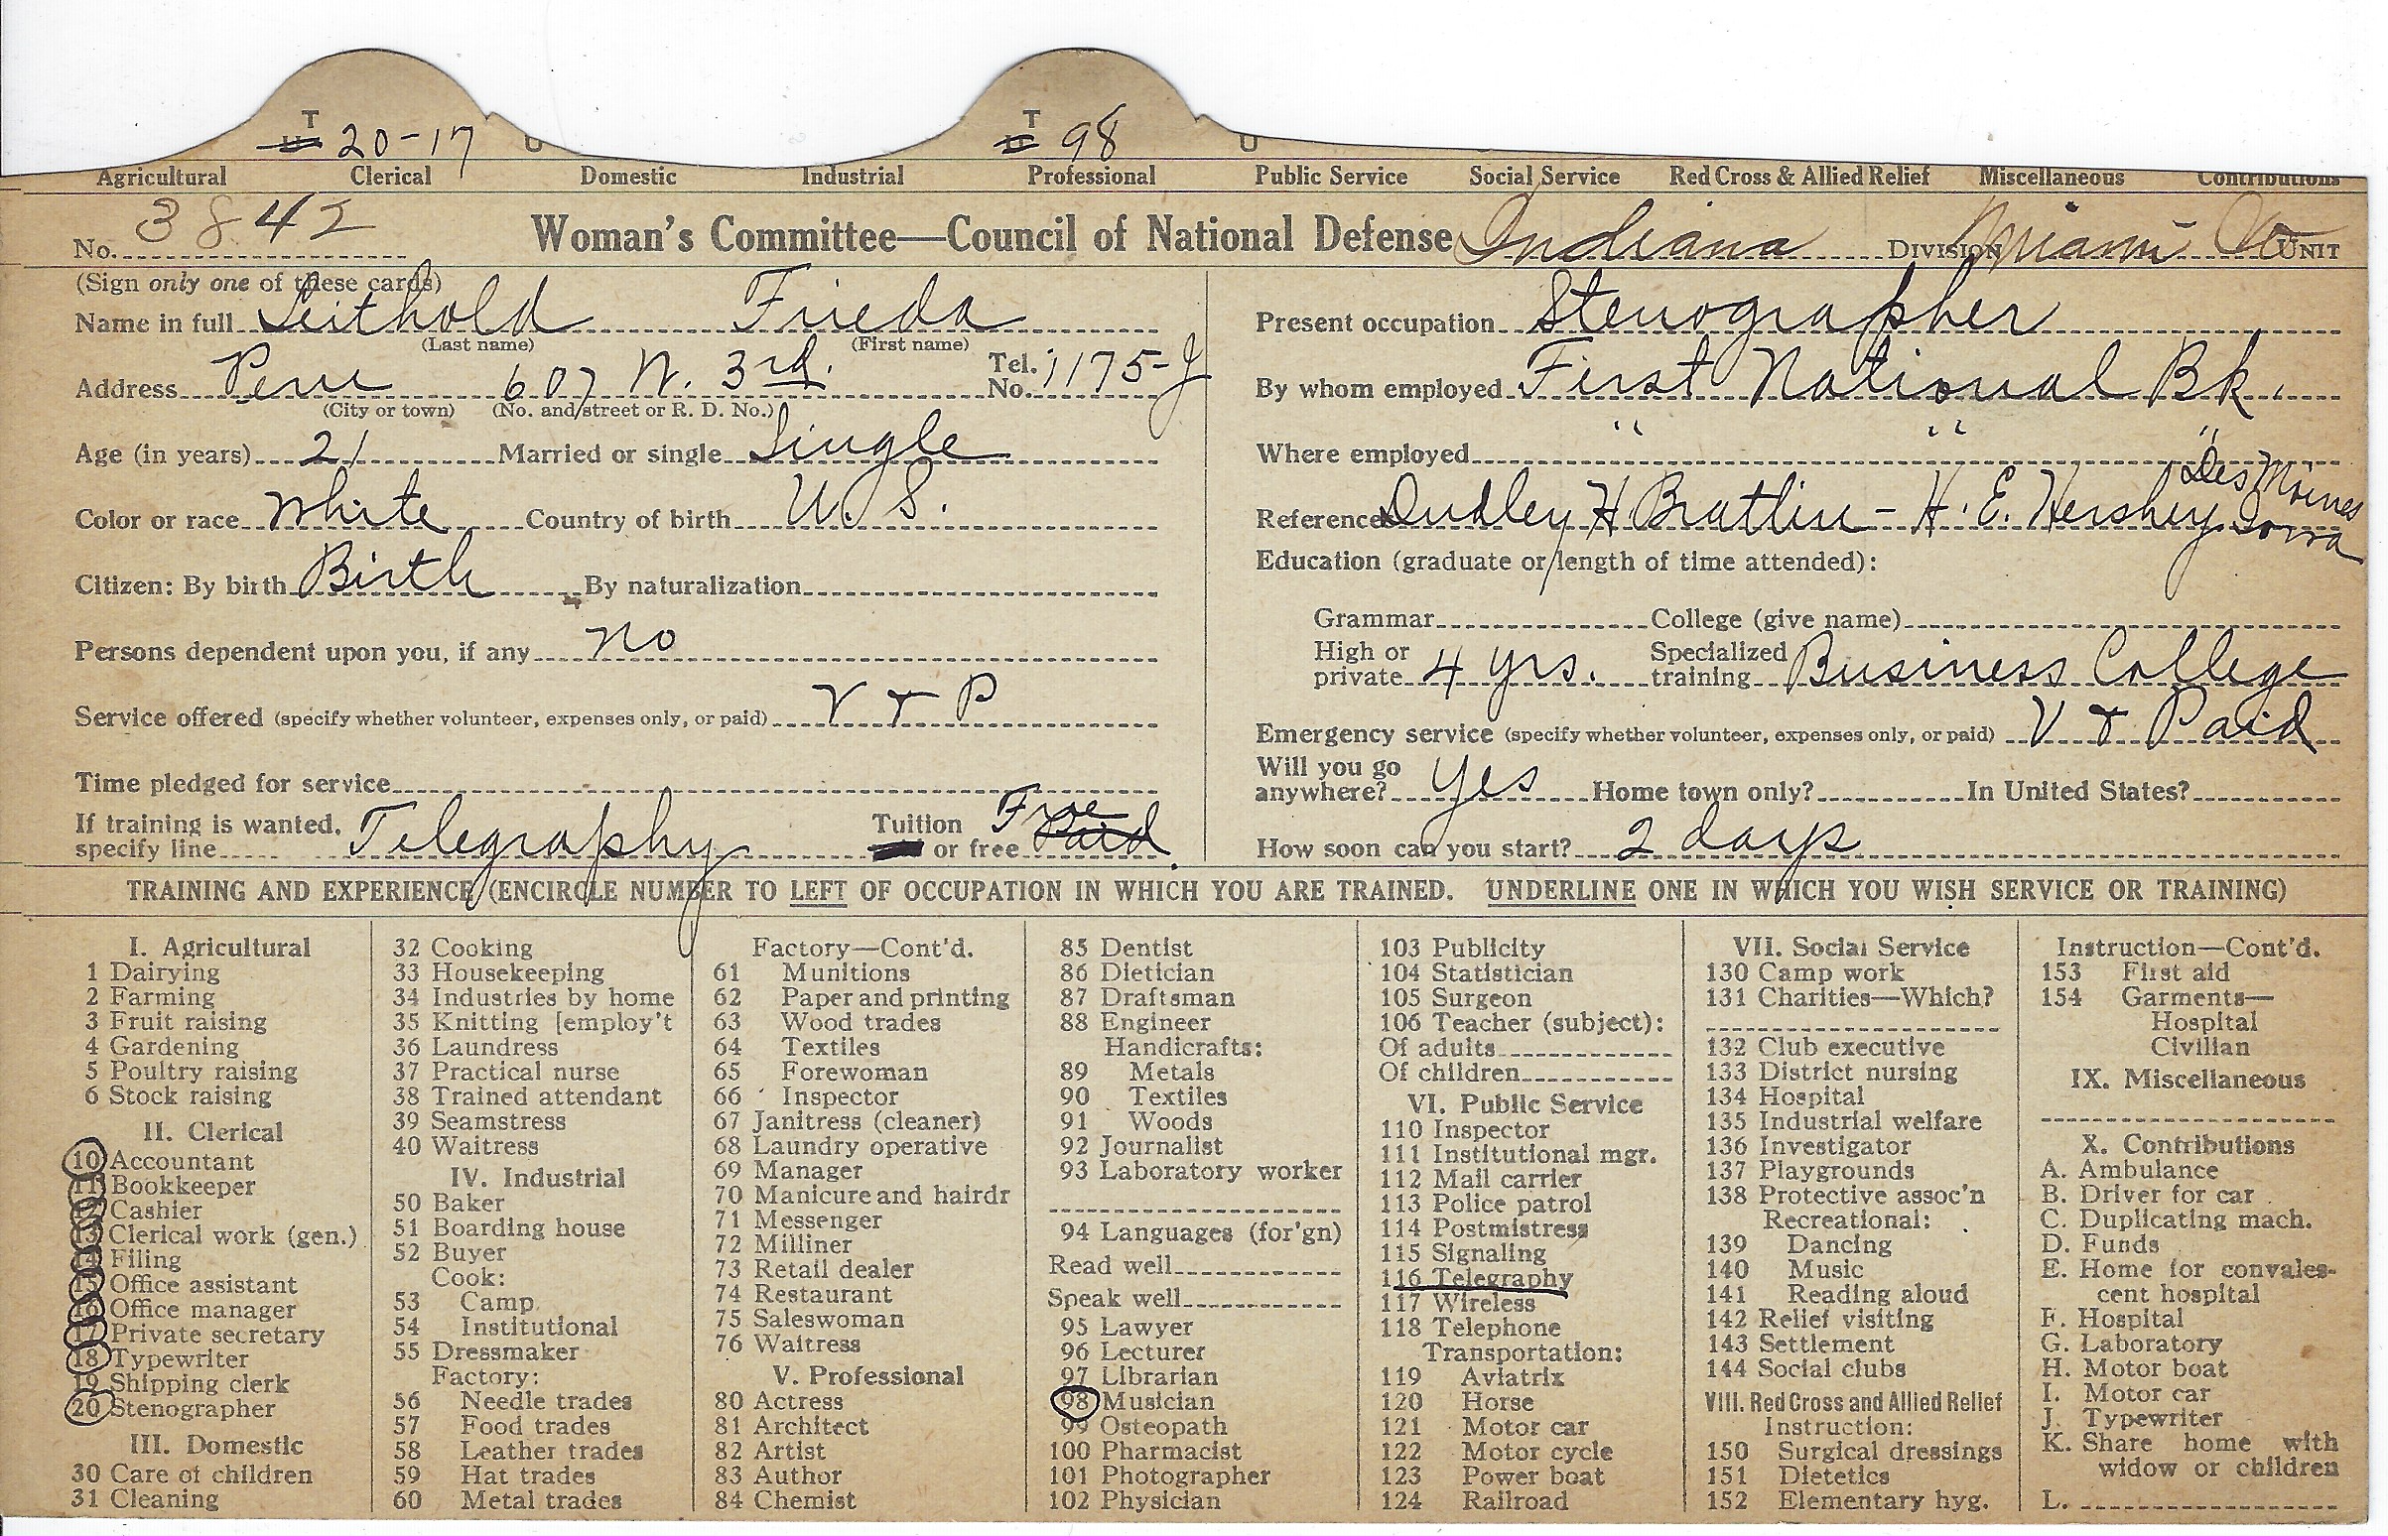 T 20-17 U T 98 U
Agricultural Clerical Domestic Industrial Professional Public Service Social Service Red Cross & Allied Relief Miscellaneous Contributions
No. 3842 Woman's Committee—Council of National Defense Indiana DIVISION Miami Co UNIT
(Sign only one of these cards)
Name in full Leithold Frieda
(Last name) (First name)
Address Peru 607 N. 3rd. Tel. No. 1175-J
(City or town) (No. and street or R. D. No.)
Age (in years) 21 Married or single Single
Color or race White Country of birth U. S.
Citizen: By birth Birth By naturalization
Persons dependent upon you, if any no
Service offered (specify whether volunteer, expenses only, or paid) V + P
Time pledged for service
If training is wanted, specify line Telegraphy Tuition or free Free Paid.
Present occupation Stenographer
By whom employed First National Bk.
Where employed " " "
References Dudley H. Bratlin - H. E. Hershey Des Moines Iowa
Education (graduate or length of time attended):
Grammar College (give name)
High or private 4 yrs. Specialized training Business College
Emergency service (specify whether volunteer, expenses only, or paid) V + Paid
Will you go anywhere? yes Home town only? In United States?
How soon can you start? 2 days
TRAINING AND EXPERIENCE (ENCIRCLE NUMBER TO LEFT OF OCCUPATION IN WHICH YOU ARE TRAINED. UNDERLINE ONE IN WHICH YOU WISH SERVICE OR TRAINING)
I. Agricultural
1 Dairying
2 Farming
3 Fruit raising
4 Gardening
5 Poultry raising
6 Stock raising
II. Clerical
10 Accountant
11 Bookkeeper
12 Cashier
13 Clerical work (gen.)
14 Filing
15 Office assistant
16 Office manager
17 Private secretary
18 Typewriter
19 Shipping clerk
20 Stenographer
III. Domestic
30 Care of children
31 Cleaning
32 Cooking
33 Housekeeping
34 Industries by home
35 Knitting [employ't
36 Laundress
37 Practical nurse
38 Trained attendant
39 Seamstress
40 Waitress
IV. Industrial
50 Baker
51 Boarding house
52 Buyer
Cook:
53 Camp
54 Institutional
55 Dressmaker
Factory:
56 Needle trades
57 Food trades
58 Leather trades
59 Hat trades
60 Metal trades
Factory—Cont'd.
61 Munitions
62 Paper and printing
63 Wood trades
64 Textiles
65 Forewoman
66 Inspector
67 Janitress (cleaner)
68 Laundry operative
69 Manager
70 Manicure and hairdr
71 Messenger
72 Milliner
73 Retail dealer
74 Restaurant
75 Saleswoman
76 Waitress
V. Professional
80 Actress
81 Architect
82 Artist
83 Author
84 Chemist
85 Dentist
86 Dietician
87 Draftsman
88 Engineer
Handicrafts:
89 Metals
90 Textiles
91 Woods
92 Journalist
93 Laboratory worker
94 Languages (for'gn)
Read well
Speak well
95 Lawyer
96 Lecturer
97 Librarian
98 Musician
99 Osteopath
100 Pharmacist
101 Photographer
102 Physician
103 Publicity
104 Statistician
105 Surgeon
106 Teacher (subject):
Of adults
Of children
VI. Public Service
110 Inspector
111 Institutional mgr.
112 Mail carrier
113 Police patrol
114 Postmistress
115 Signaling
116 Telegraphy
117 Wireless
118 Telephone
Transportation:
119 Aviatrix
120 Horse
121 Motor car
122 Motor cycle
123 Power boat
124 Railroad
VII. Social Service
130 Camp work
131 Charities—Which?
132 Club executive
133 District nursing
134 Hospital
135 Industrial welfare
136 Investigator
137 Playgrounds
138 Protective assoc'n
Recreational:
139 Dancing
140 Music
141 Reading aloud
142 Relief visiting
143 Settlement
144 Social clubs
VIII. Red Cross and Allied Relief
Instruction:
150 Surgical dressings
151 Dietetics
152 Elementary hyg.
Instruction—Cont'd.
153 First aid
154 Garments—
Hospital
Civilian
IX. Miscellaneous
X. Contributions
A. Ambulance
B. Driver for car
C. Duplicating mach.
D. Funds
E. Home for convales-
cent hospital
F. Hospital
G. Laboratory
H. Motor boat
I. Motor car
J. Typewriter
K. Share home with
widow or children
L.